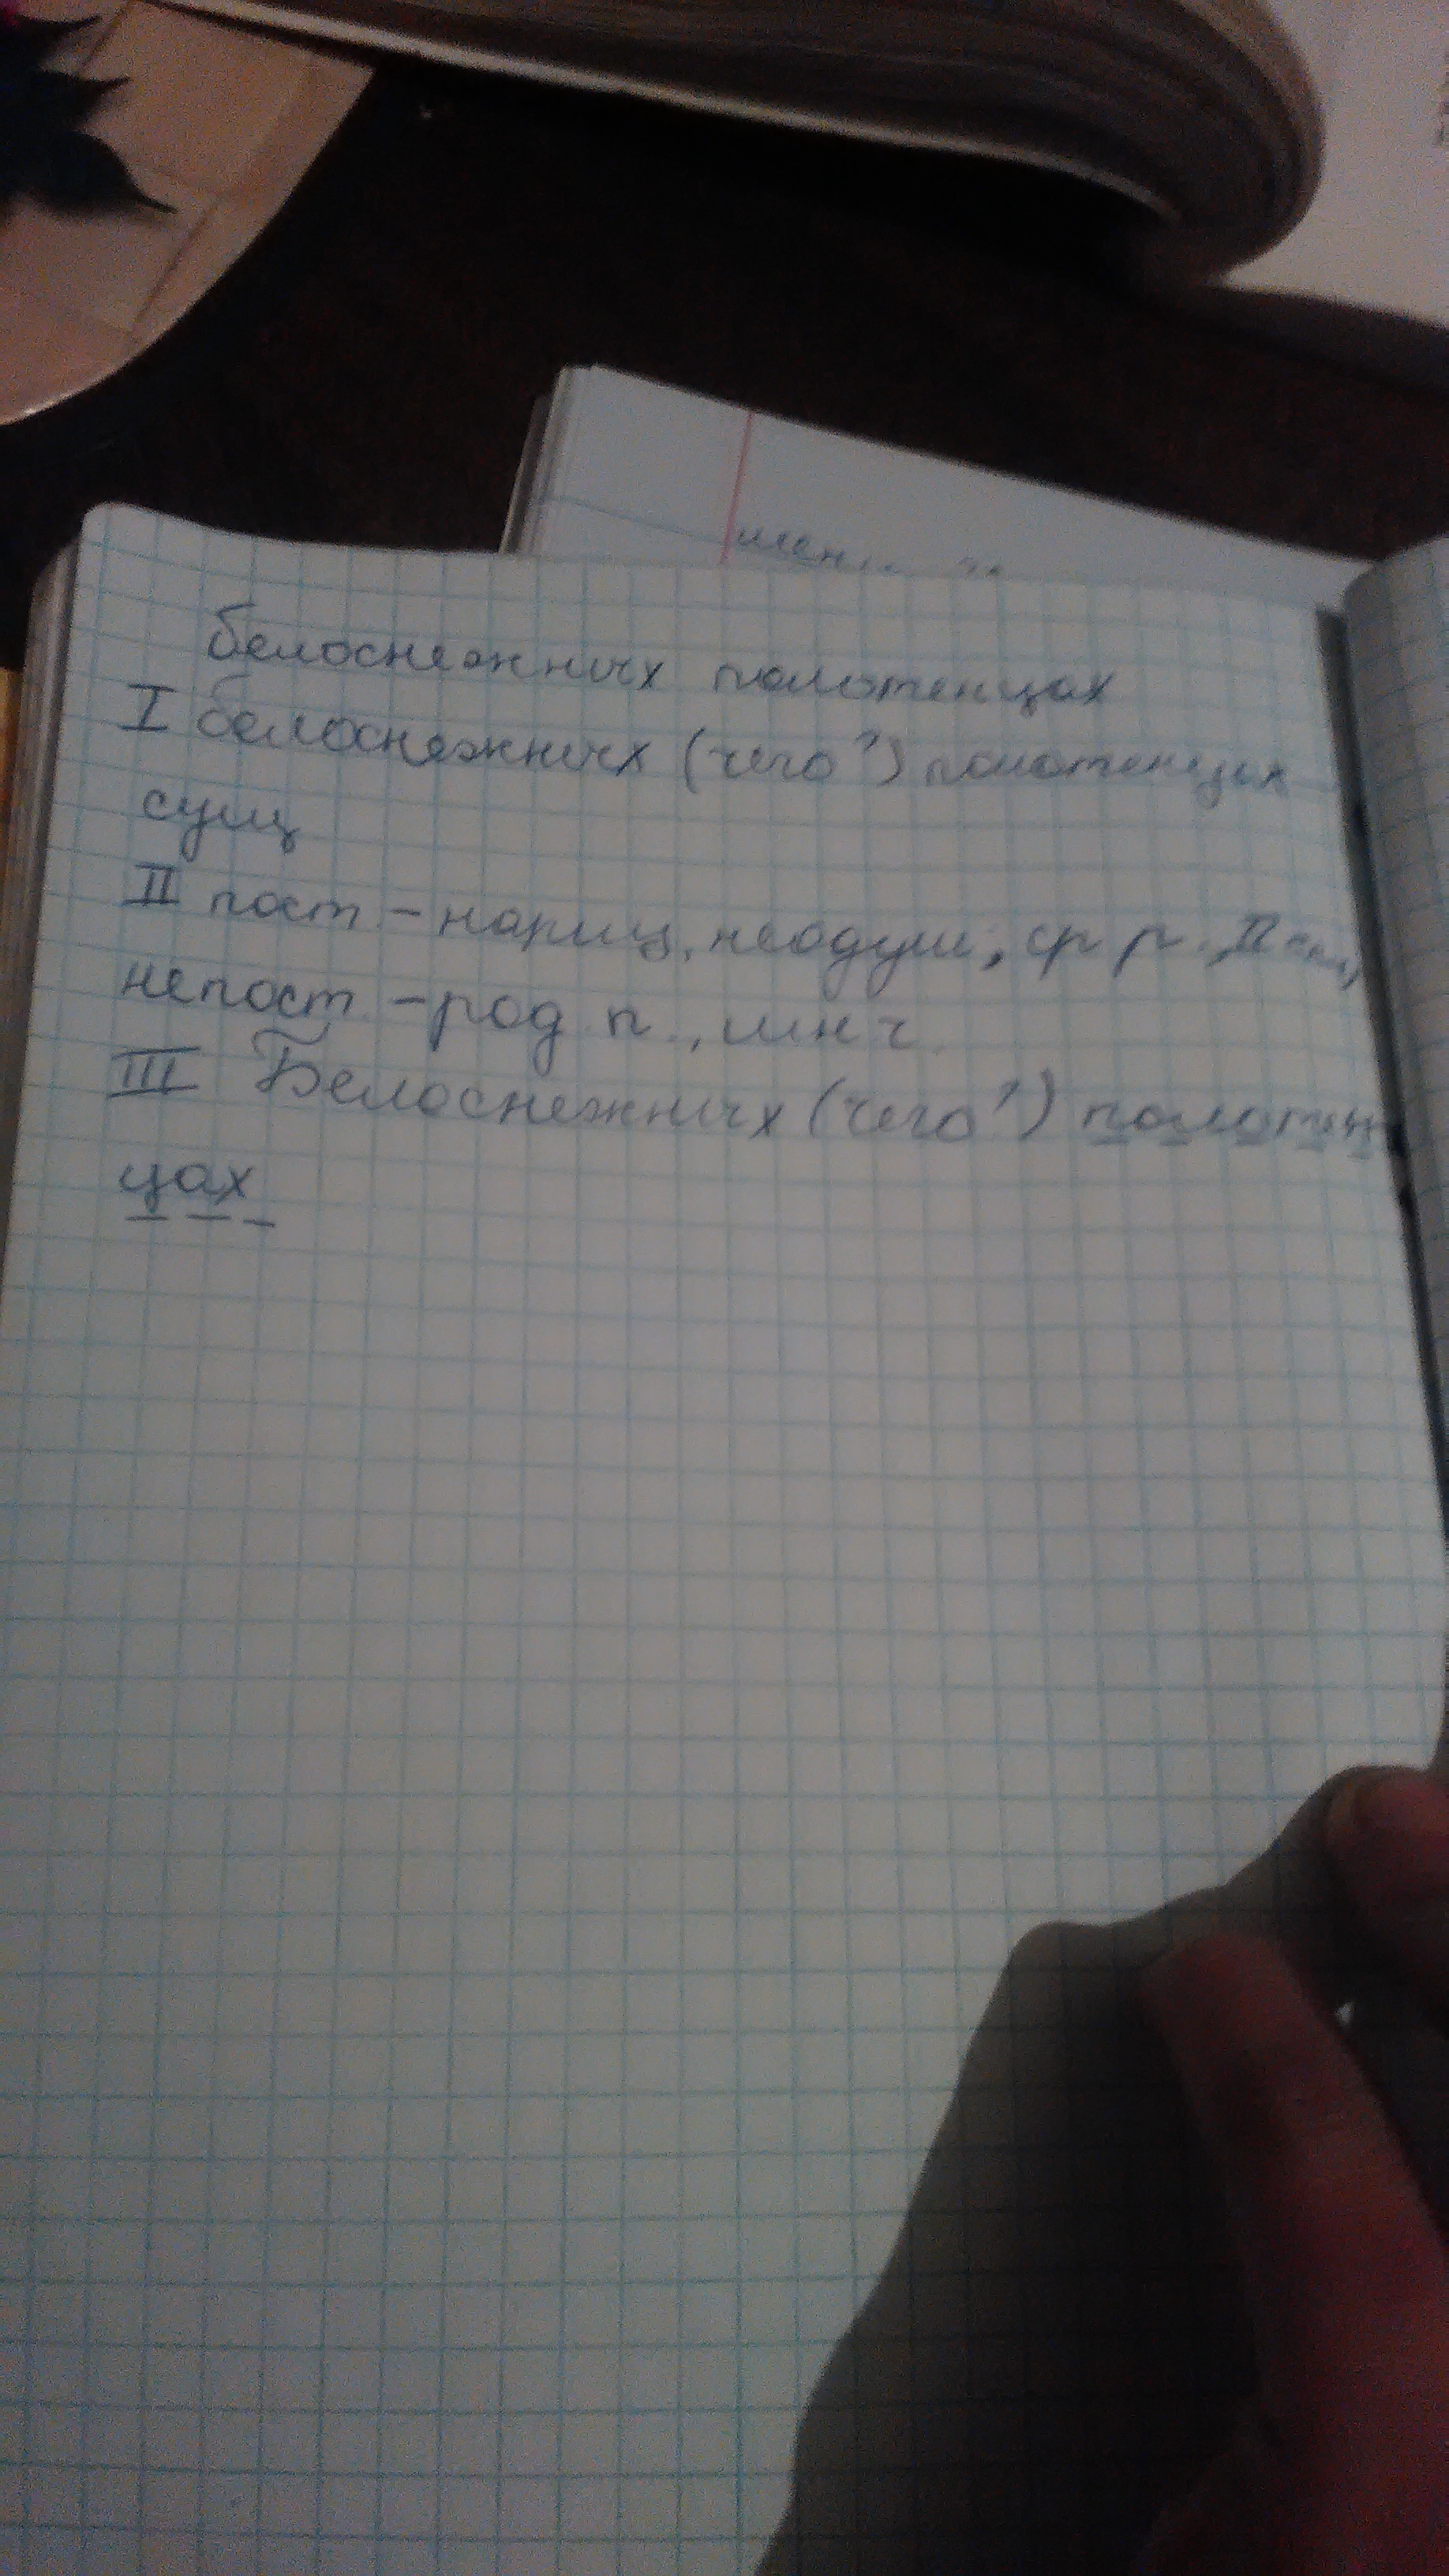 белоснежных полотенцах
I белоснежных (чего?) полотенцах
сущ
II пост. – нариц, неодуш, ср р., II скл,
непост. – род п., мн ч.
III Белоснежных (чего?) полотен
цах